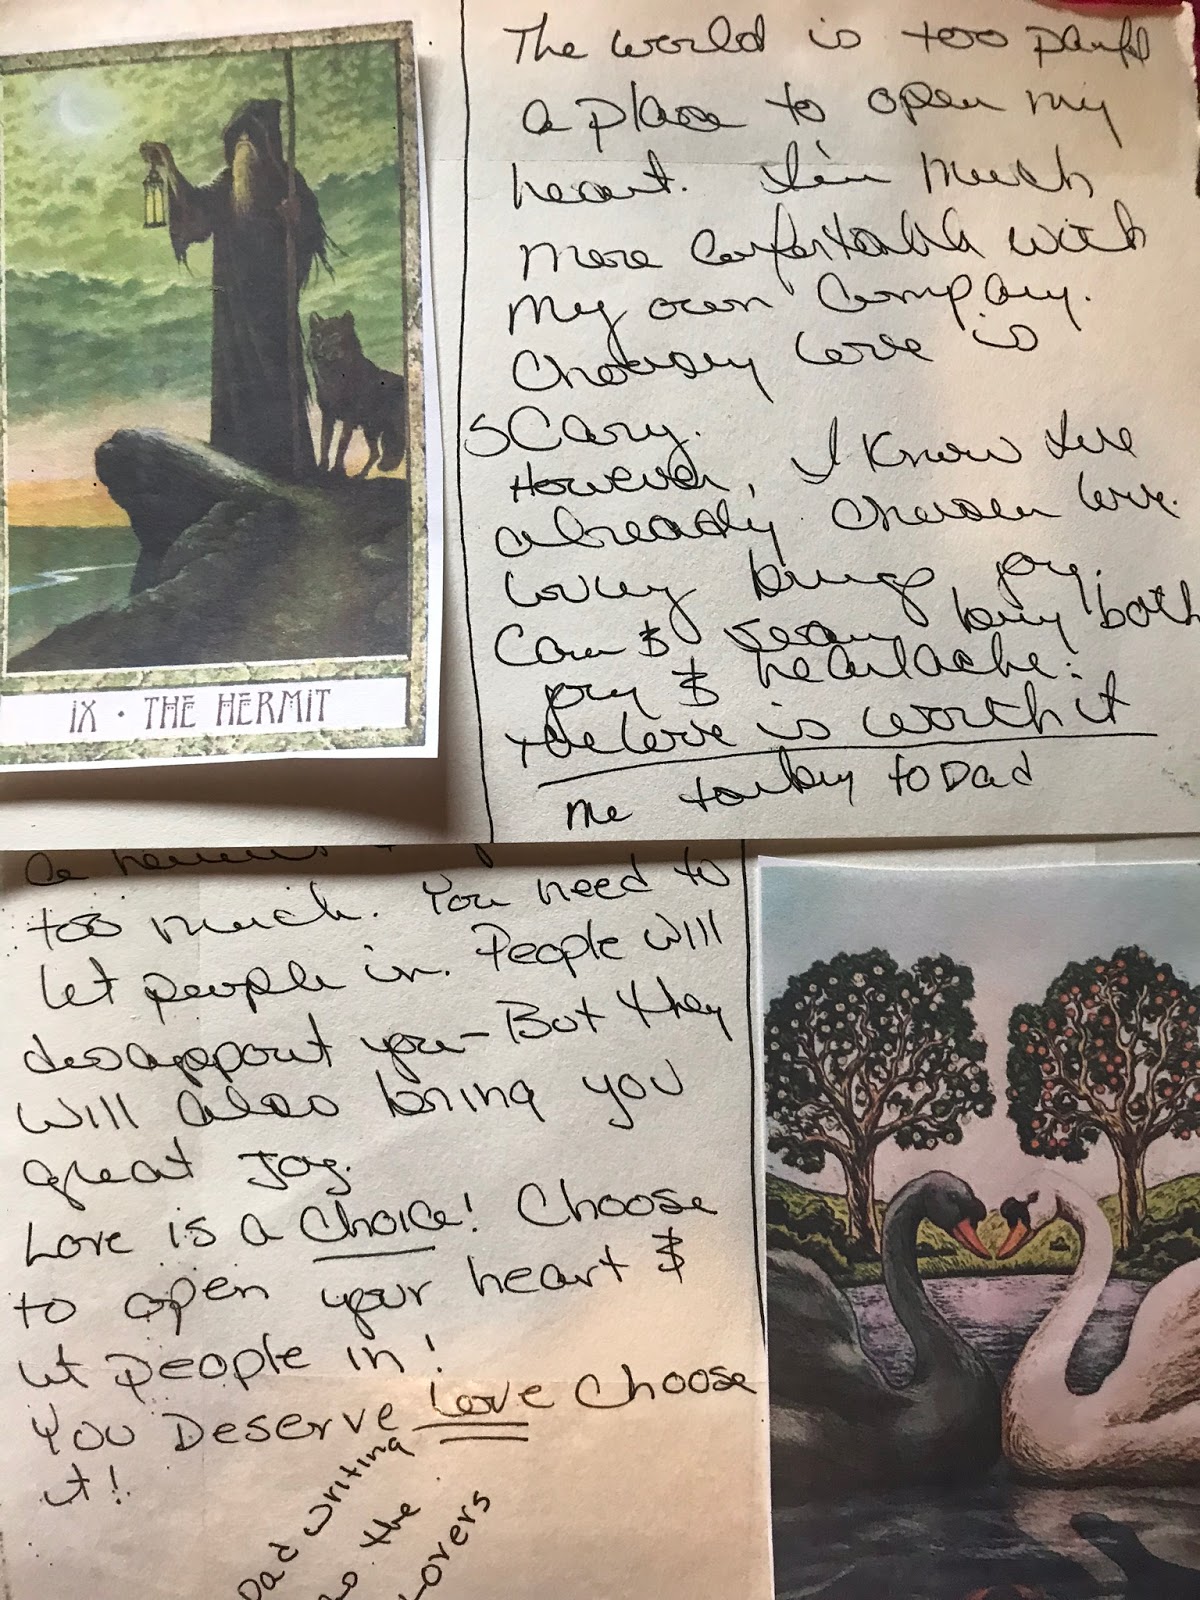 IX · THE HERMIT
The world is too painful
a place to open my
heart. I'm much
more comfortable with
my own company.
Choosing love is
scary.
However, I know I've
already chosen love.
Loving brings joy.
Can & bring both
joy & heartache:
the love is worth it
me talking to Dad
a
too much. You need to
let people in. People will
disappoint you - But they
will also bring you
great joy.
Love is a choice! Choose
to open your heart &
let people in!
You Deserve Love Choose
it!
Dad writing
as the
Lovers